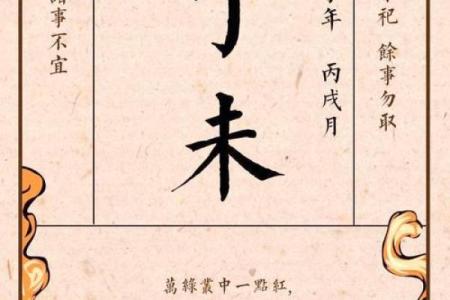 祀 餘事勿取
年 丙戌月
丁未
諸事不宜
萬綠叢中一點紅,